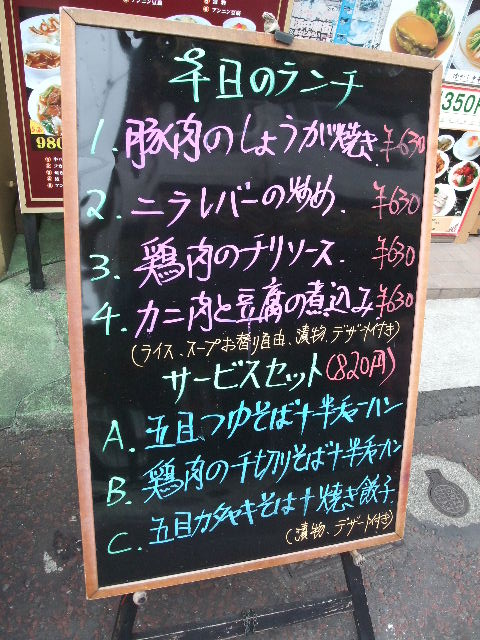 アンニン豆腐
平日のランチ
1. 豚肉のしょうが焼き ¥630
2. ニラレバーの炒め. ¥630
3. 鶏肉のチリソース ¥630
4. カニ肉と豆腐の煮込み ¥630
(ライス、スープお替り自由、漬物、デザート付き)
サービスセット(820円)
A. 五目つゆそば十半チャーハン
B. 鶏肉の千切りそば十半チャーハン
C. 五目カタヤキそば十焼き餃子
(漬物、デザート付き)
980
350円